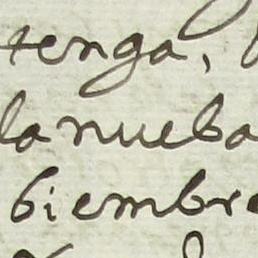 tenga,
la nueba
biembre